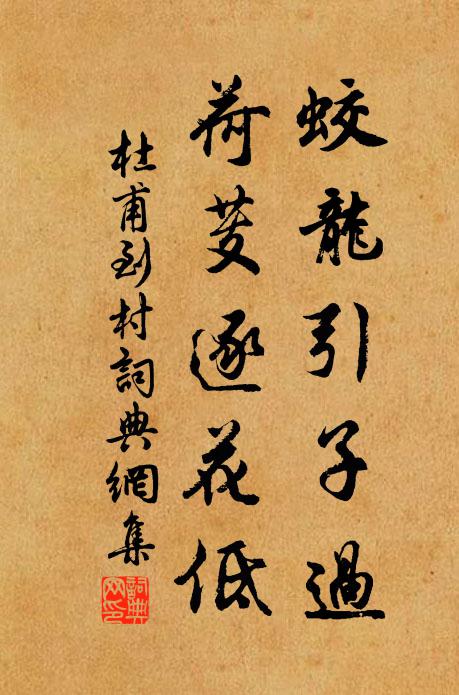 蛟龍引子過
荷芰逐花低
杜甫到村詞典網集
詞典網印